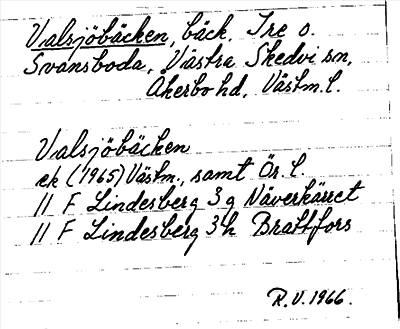 Valsjöbäcken, bäck. Tre o.
Svansboda, Västra Skedvi sn,
Åkerbo hd, Västm. l.
Valsjöbäcken
ek (1965) Västm., samt Ör. l.
11 F Lindesberg 3 g Näverkärret
11 F Lindesberg 3 h Brattfors
R.V. 1966.